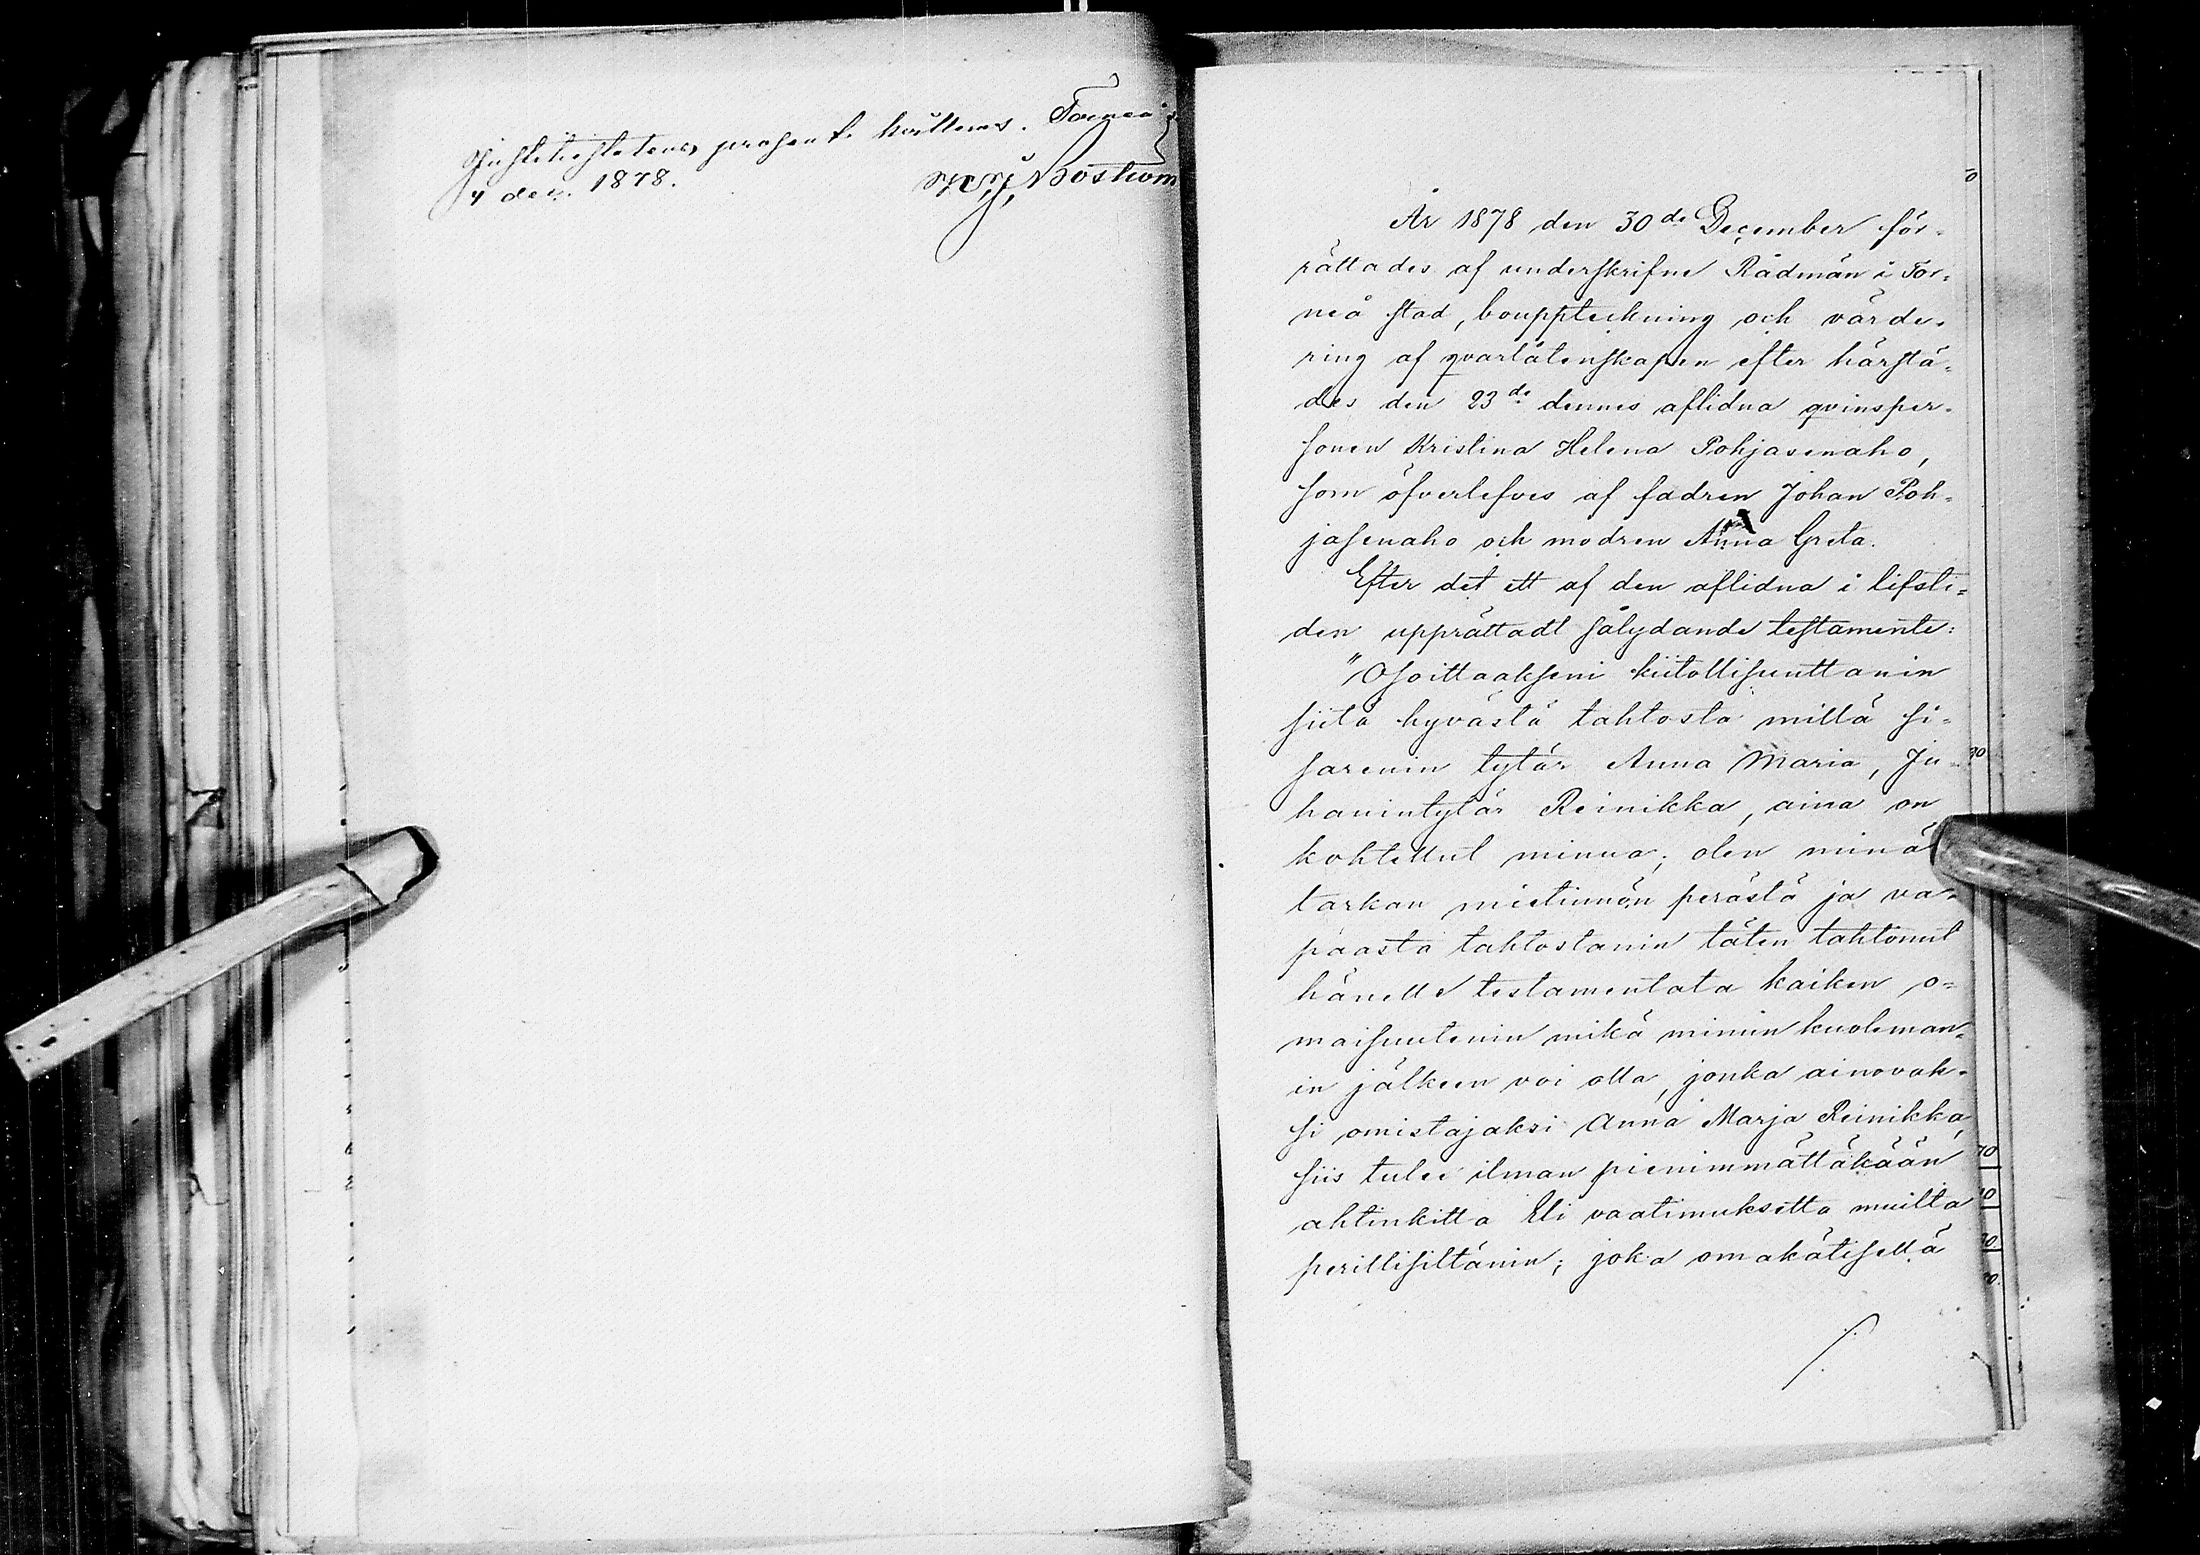 procent kvitteras. Torneå
4 dec. 1878. Boström
År 1878 den 30de December för-
rättades af underskrifne Rådmän i Tor-
neå stad, bouppteckning och värde-
ring af qvarlåtenskapen efter härstä-
des den 23de dennes aflidna qvinsper-
sonen Kristina Helena Pohjasenaho,
som öfverlefves af fadren Johan Poh-
jasenaho och modren Anna Greta.
Efter det ett af den aflidna i lifsti-
den upprättadt sålydande testamente:
"Osoittaakseni kiitollisuuttanin
siitä hyvästä tahtosta millä si-
sarenin tytär Anna Maria, Ju-
hanintytär Reinikka, aina on
kohtellut minua; olen minä
tarkan mietinnön perästä ja va-
paasta tahtostanin täten tahtonut
hänelle testamentata kaiken o-
maisuutenin mikä minun kuoleman-
in jälkeen voi olla, jonka ainovak-
si omistajaksi Anna Marja Reinikka
siis tulee ilman pienimmättäkään
ahtinkitta Eli vaatimuksetta muilta
perillisiltänin; joka omakätisellä